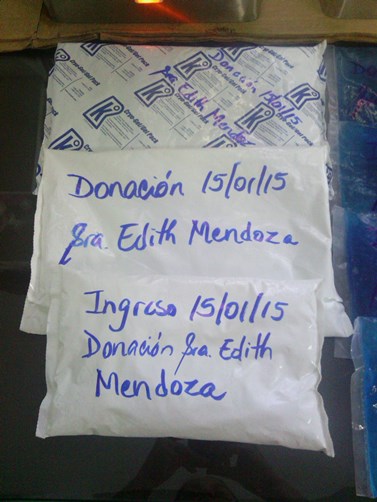 Donación 15/01/15
Sra. Edith Mendoza
Donación 15/01/15
Sra. Edith Mendoza
Ingreso 15/01/15
Donación Sra. Edith
Mendoza